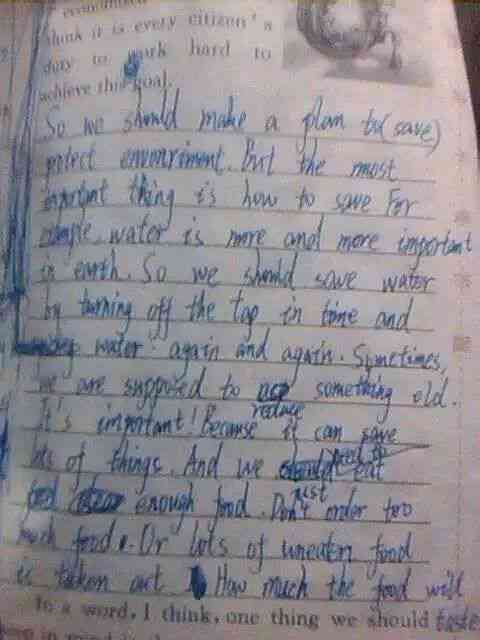 think it is every citizen's
duty to work hard to
achieve this goal.
So we should make a plan to (save)
protect envonriment. But the most
important thing is how to save For
example, water is more and more important
in earth. So we should save water
by turning off the tap in time and
water again and again. Sometimes,
we are supposed to something old.
reduce
It's important! Because it can save
lots of things. And we need to eat
just
enough food. Don't order too
much food. Or lots of uneaten food
is taken out How much the food will
In a word, I think, one thing we should taste